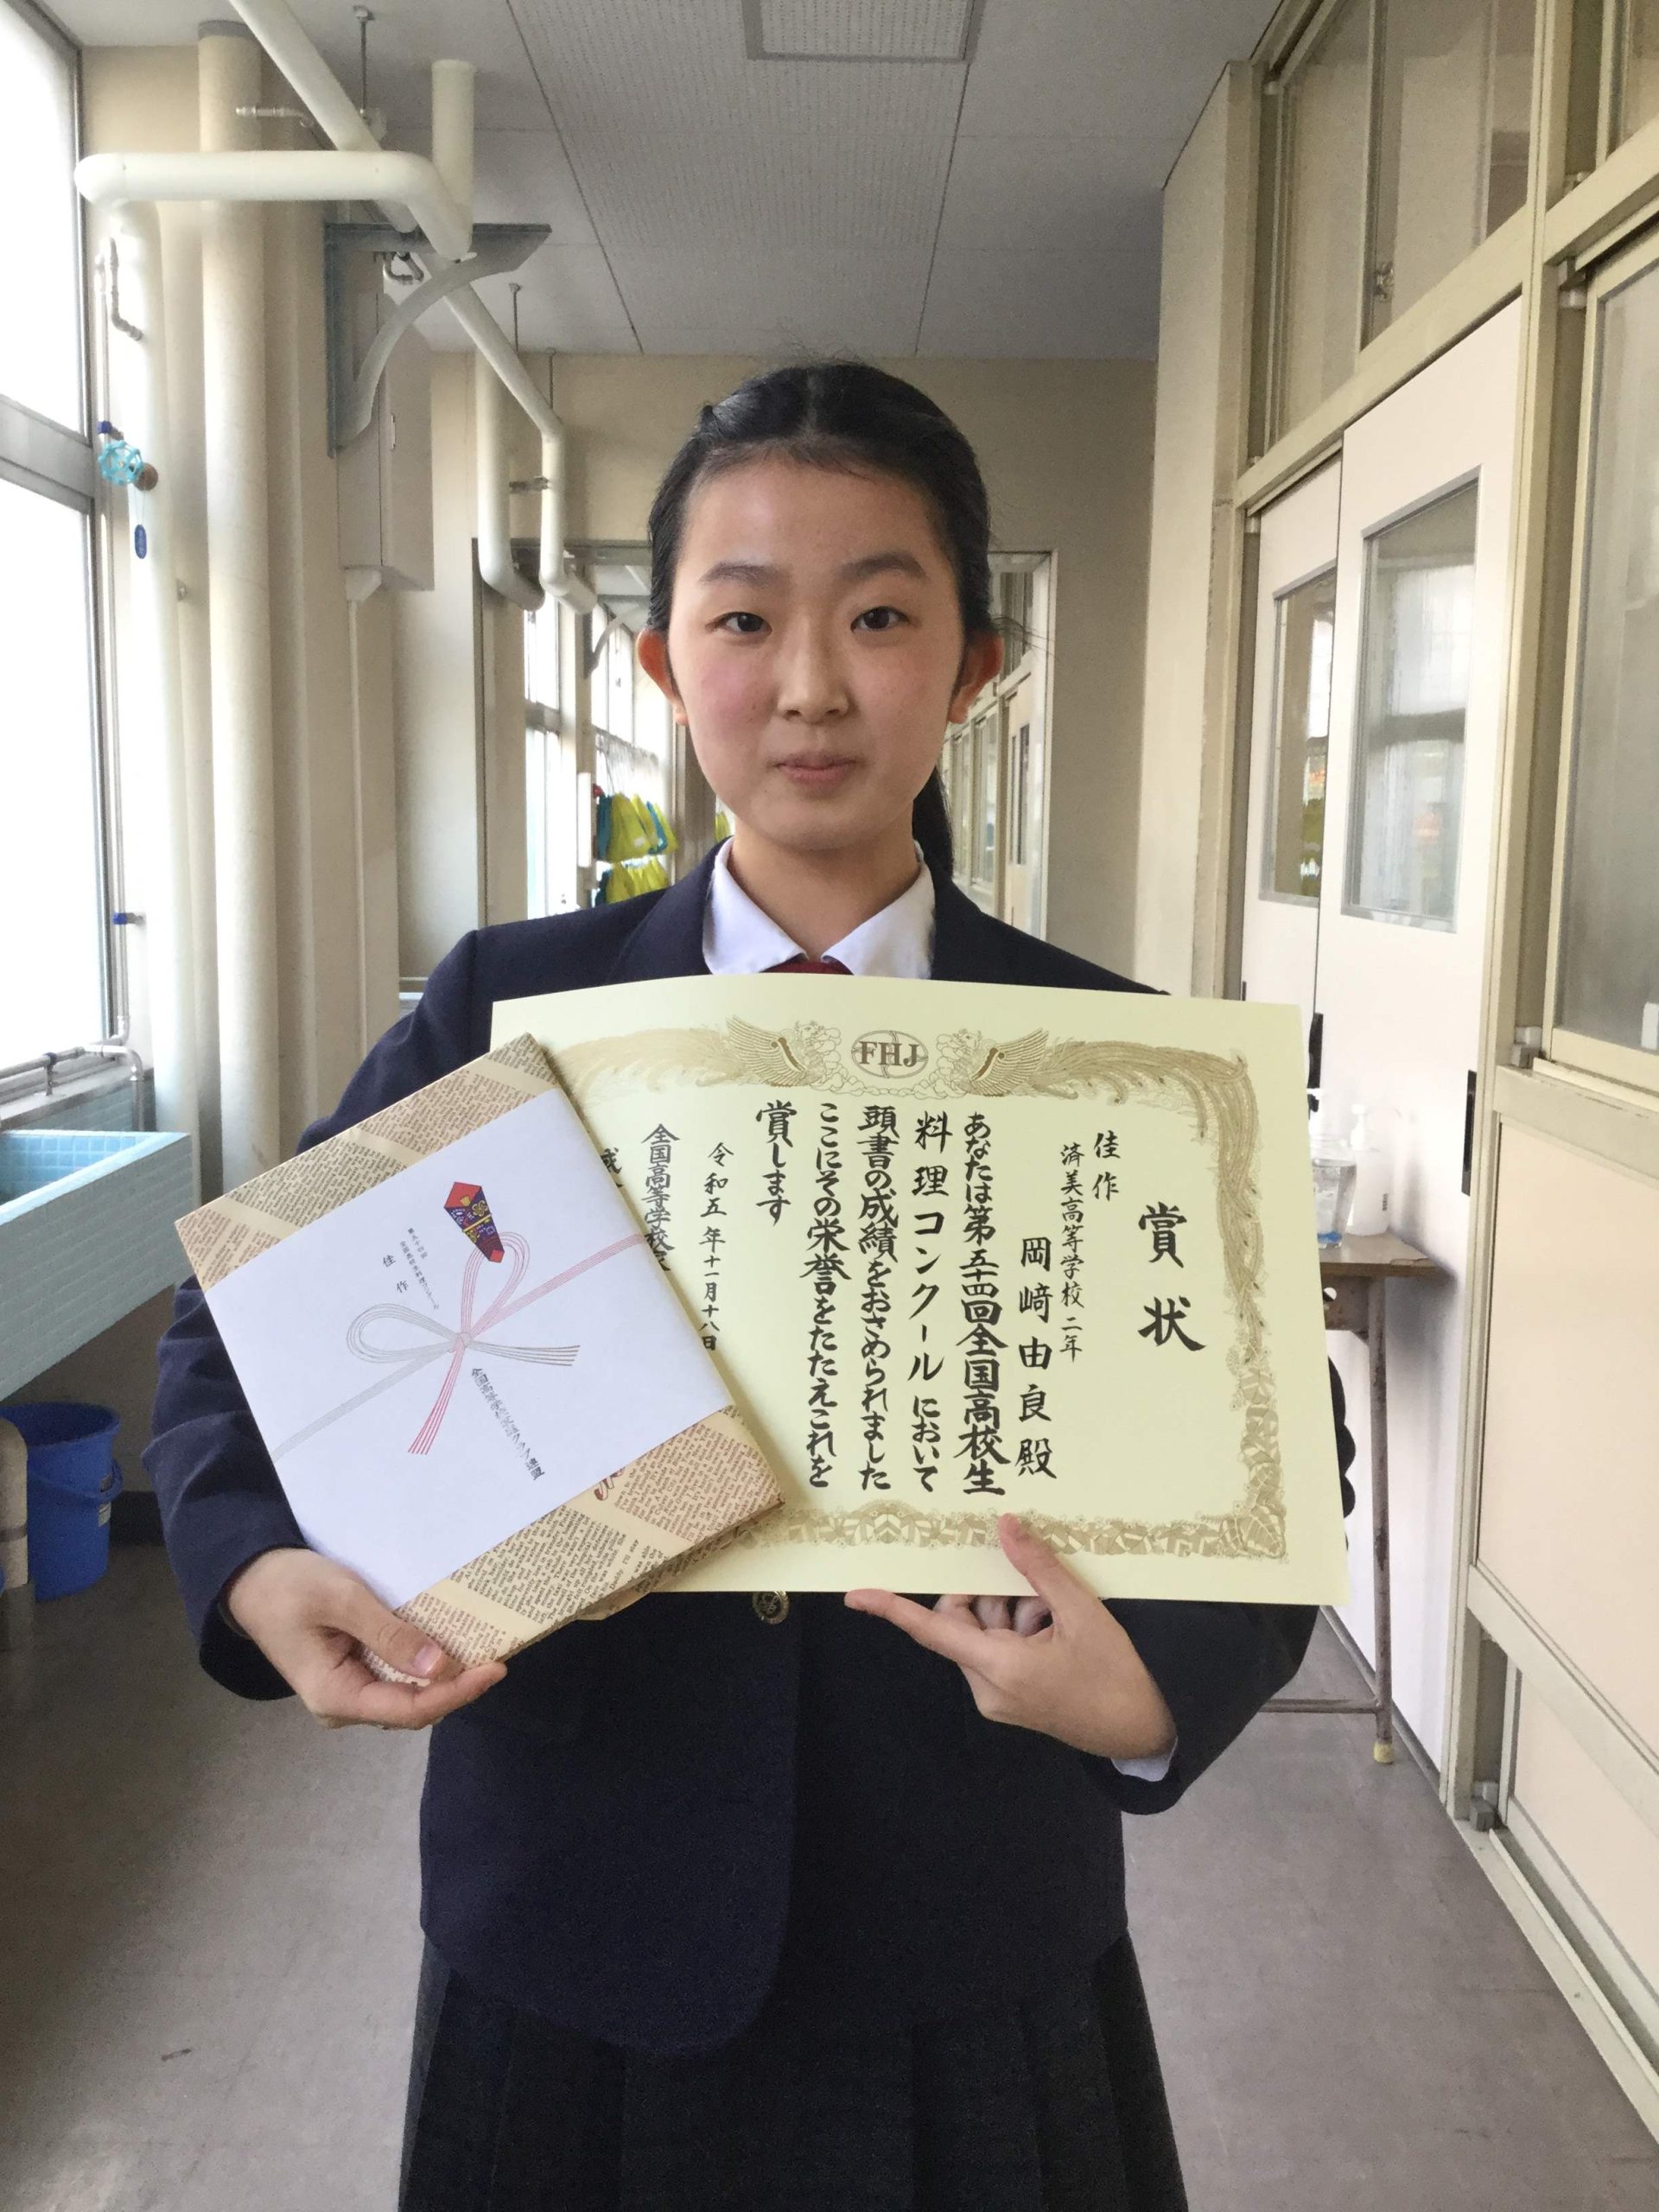 FHJ
賞状
佳作
済美高等学校二年
岡﨑由良殿
あなたは第五十四回全国高校生
料理コンクールにおいて
頭書の成績をおさめられました
ここにその栄誉をたたえこれを
賞します
令和五年十一月十八日
全国高等学校
第五十四回
全国高校生料理コンクール
佳作
全国高等学校家庭クラブ連盟